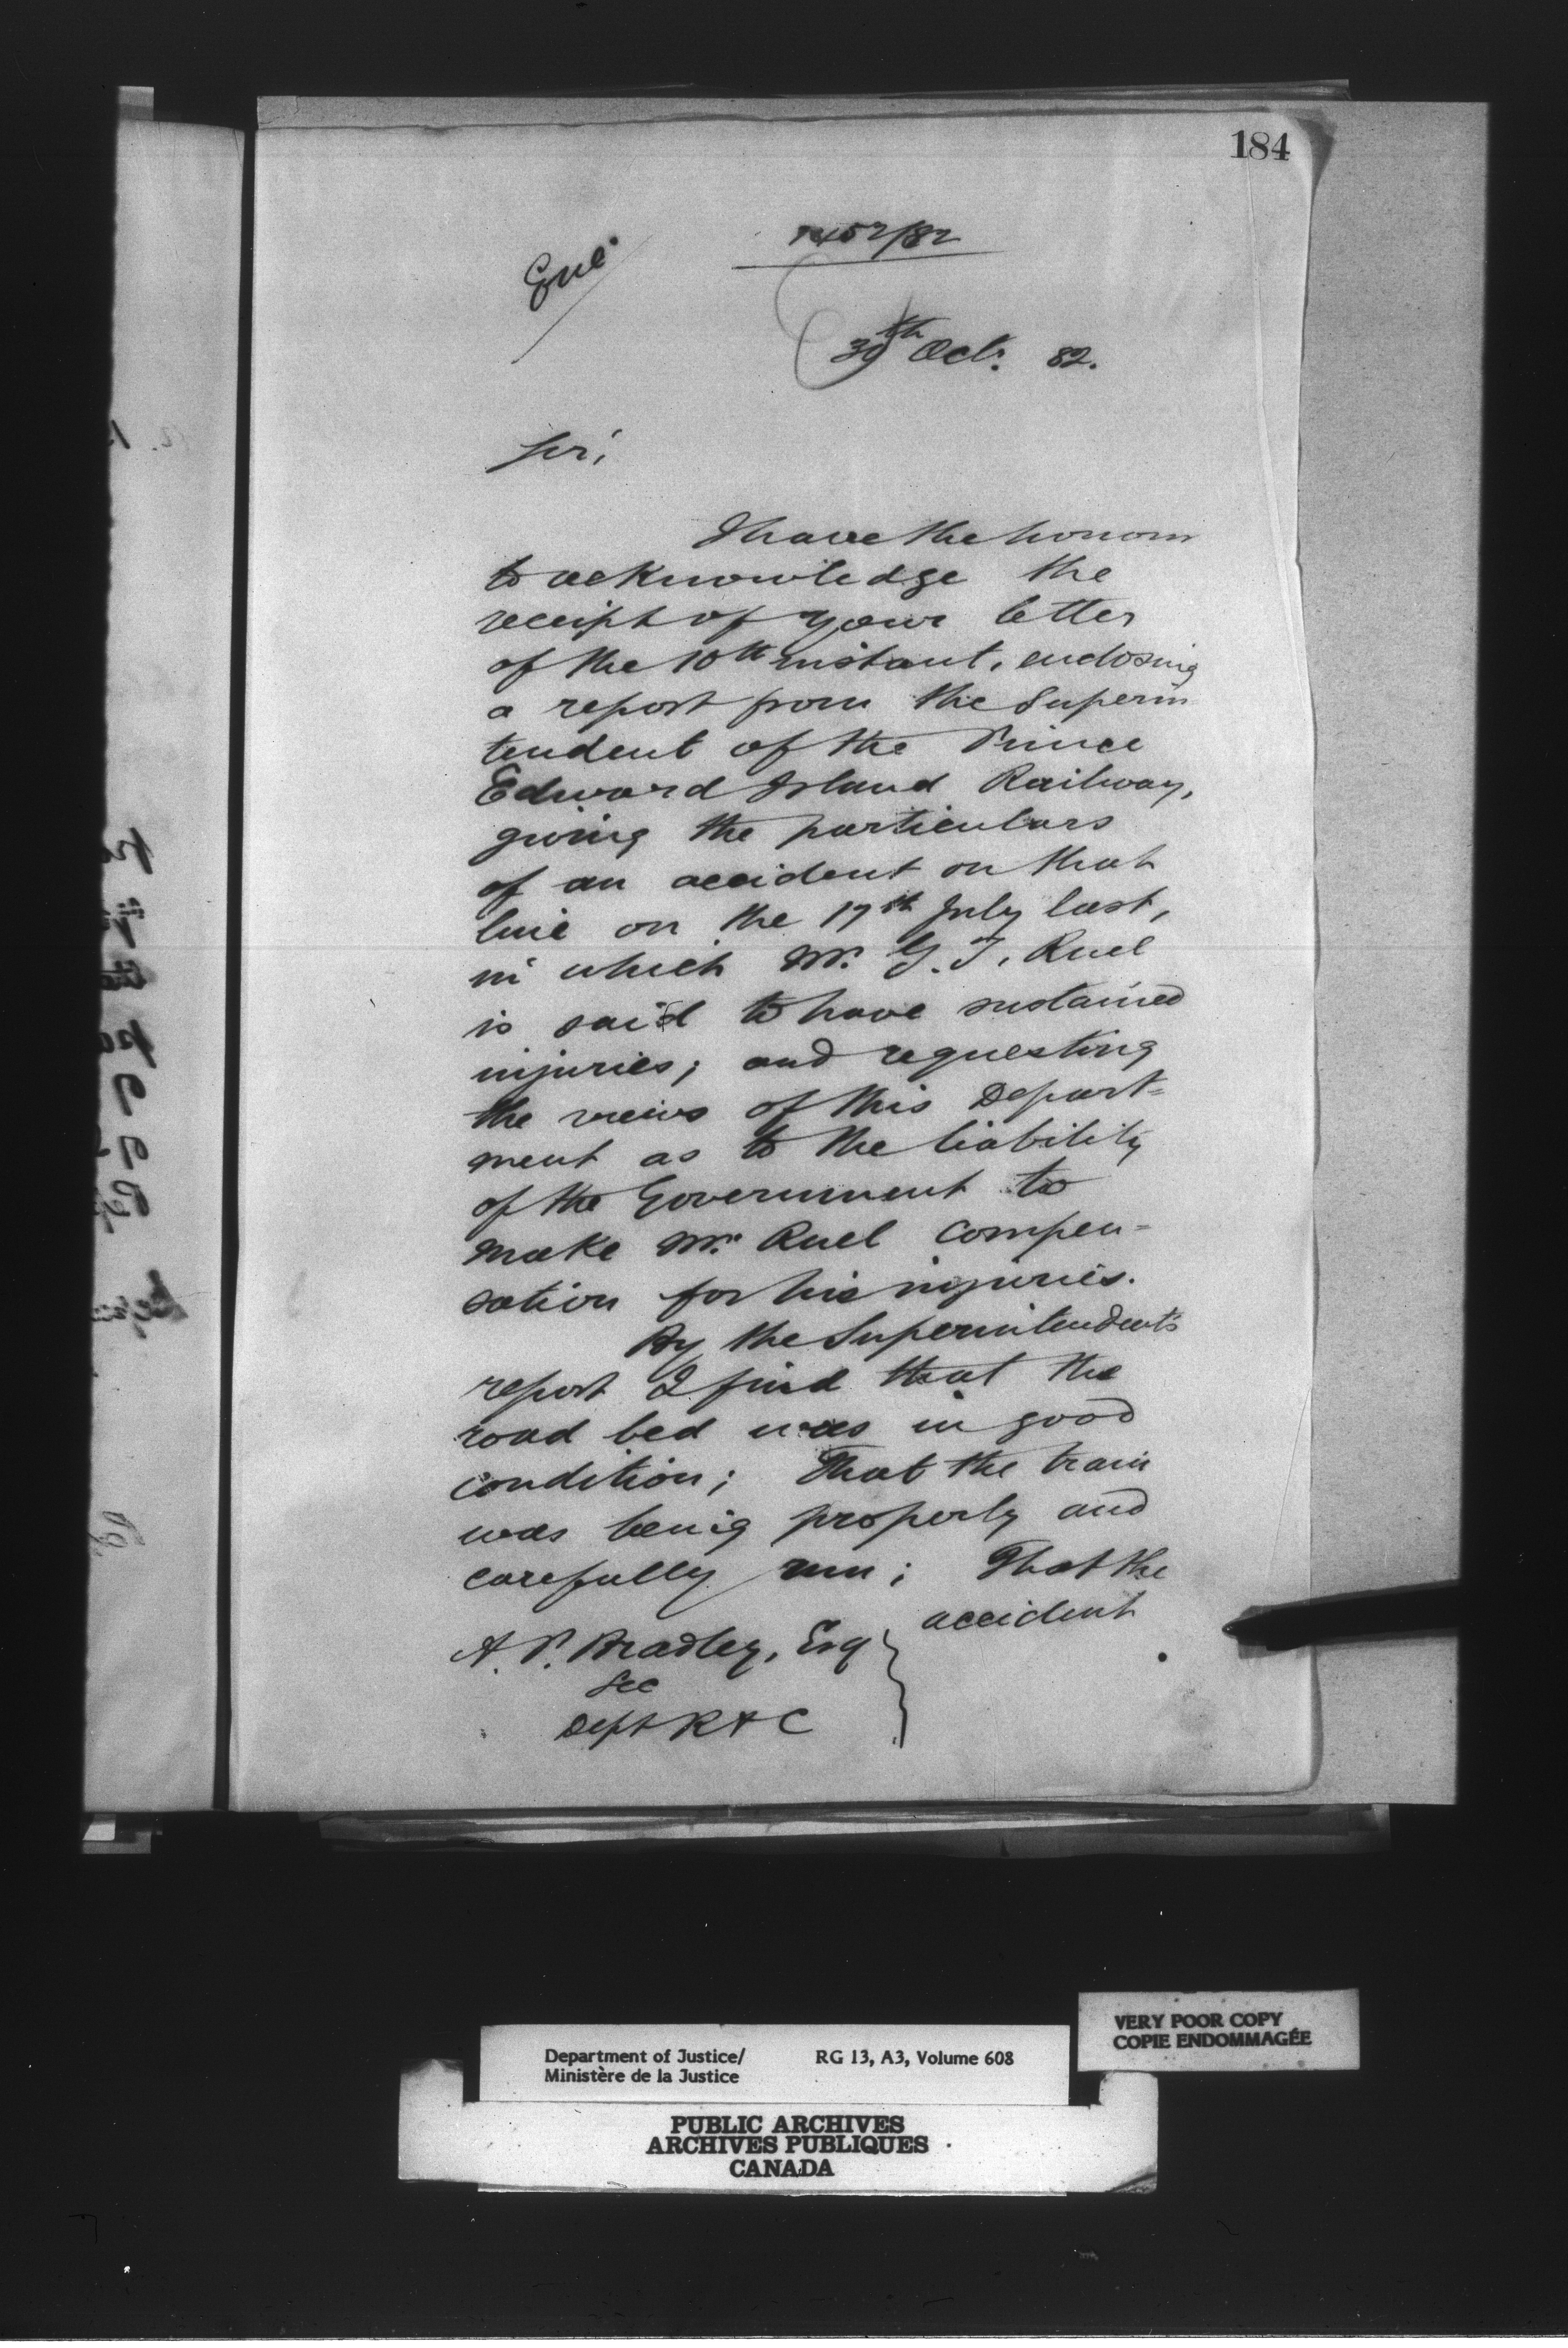 184
Encl
1452/82
30th Oct. 82.
Sir,
I have the honour
to acknowledge the
receipt of your letter
of the 10th instant, enclosing
a report from the Superin
tendent of the Prince
Edward Island Railway,
giving the particulars
of an accident on that
line on the 17th July last,
in which Mr. G. T. Ruel
is said to have sustained
injuries; and requesting
the views of this Depart=
ment as to the liability
of the Government to
make Mr. Ruel compen=
sation for his injuries.
By the Superintendent's
report I find that the
road bed was in good
condition; That the train
was being properly and
carefully run; That the
accident
A. P. Bradley, Esq
Sec
Dept R & C
VERY POOR COPY
COPIE ENDOMMAGÉE
Department of Justice/ RG 13, A3, Volume 608
Ministère de la Justice
PUBLIC ARCHIVES
ARCHIVES PUBLIQUES
CANADA